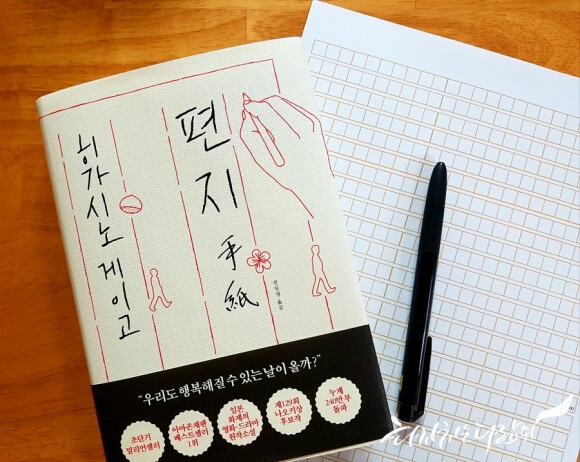 편지
手紙
히가시노 게이고
권일영 옮김
“우리도 행복해질 수 있는 날이 올까?”
초단기
밀리언셀러
아마존재팬
베스트셀러
1위
일본
화제의
영화·드라마
원작소설
제129회
나오키상
후보작
누계
240만 부
돌파